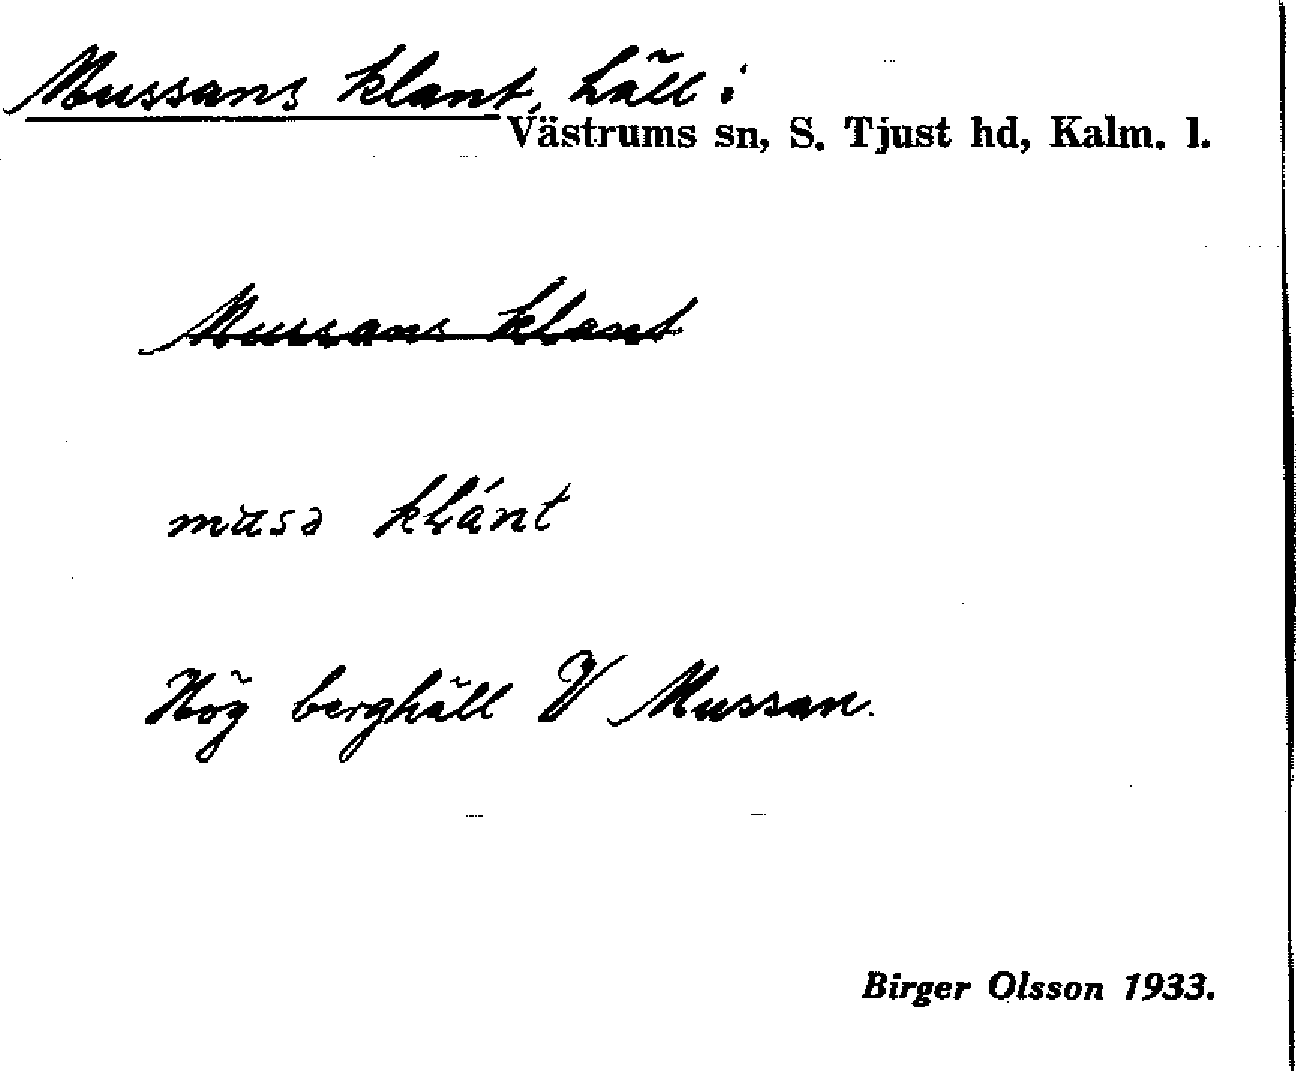 Mussans klant, häll i
Västrums sn, S. Tjust hd, Kalm. l.
Mussans klant
musa klánt
Hög berghäll V Mussan.
Birger Olsson 1933.